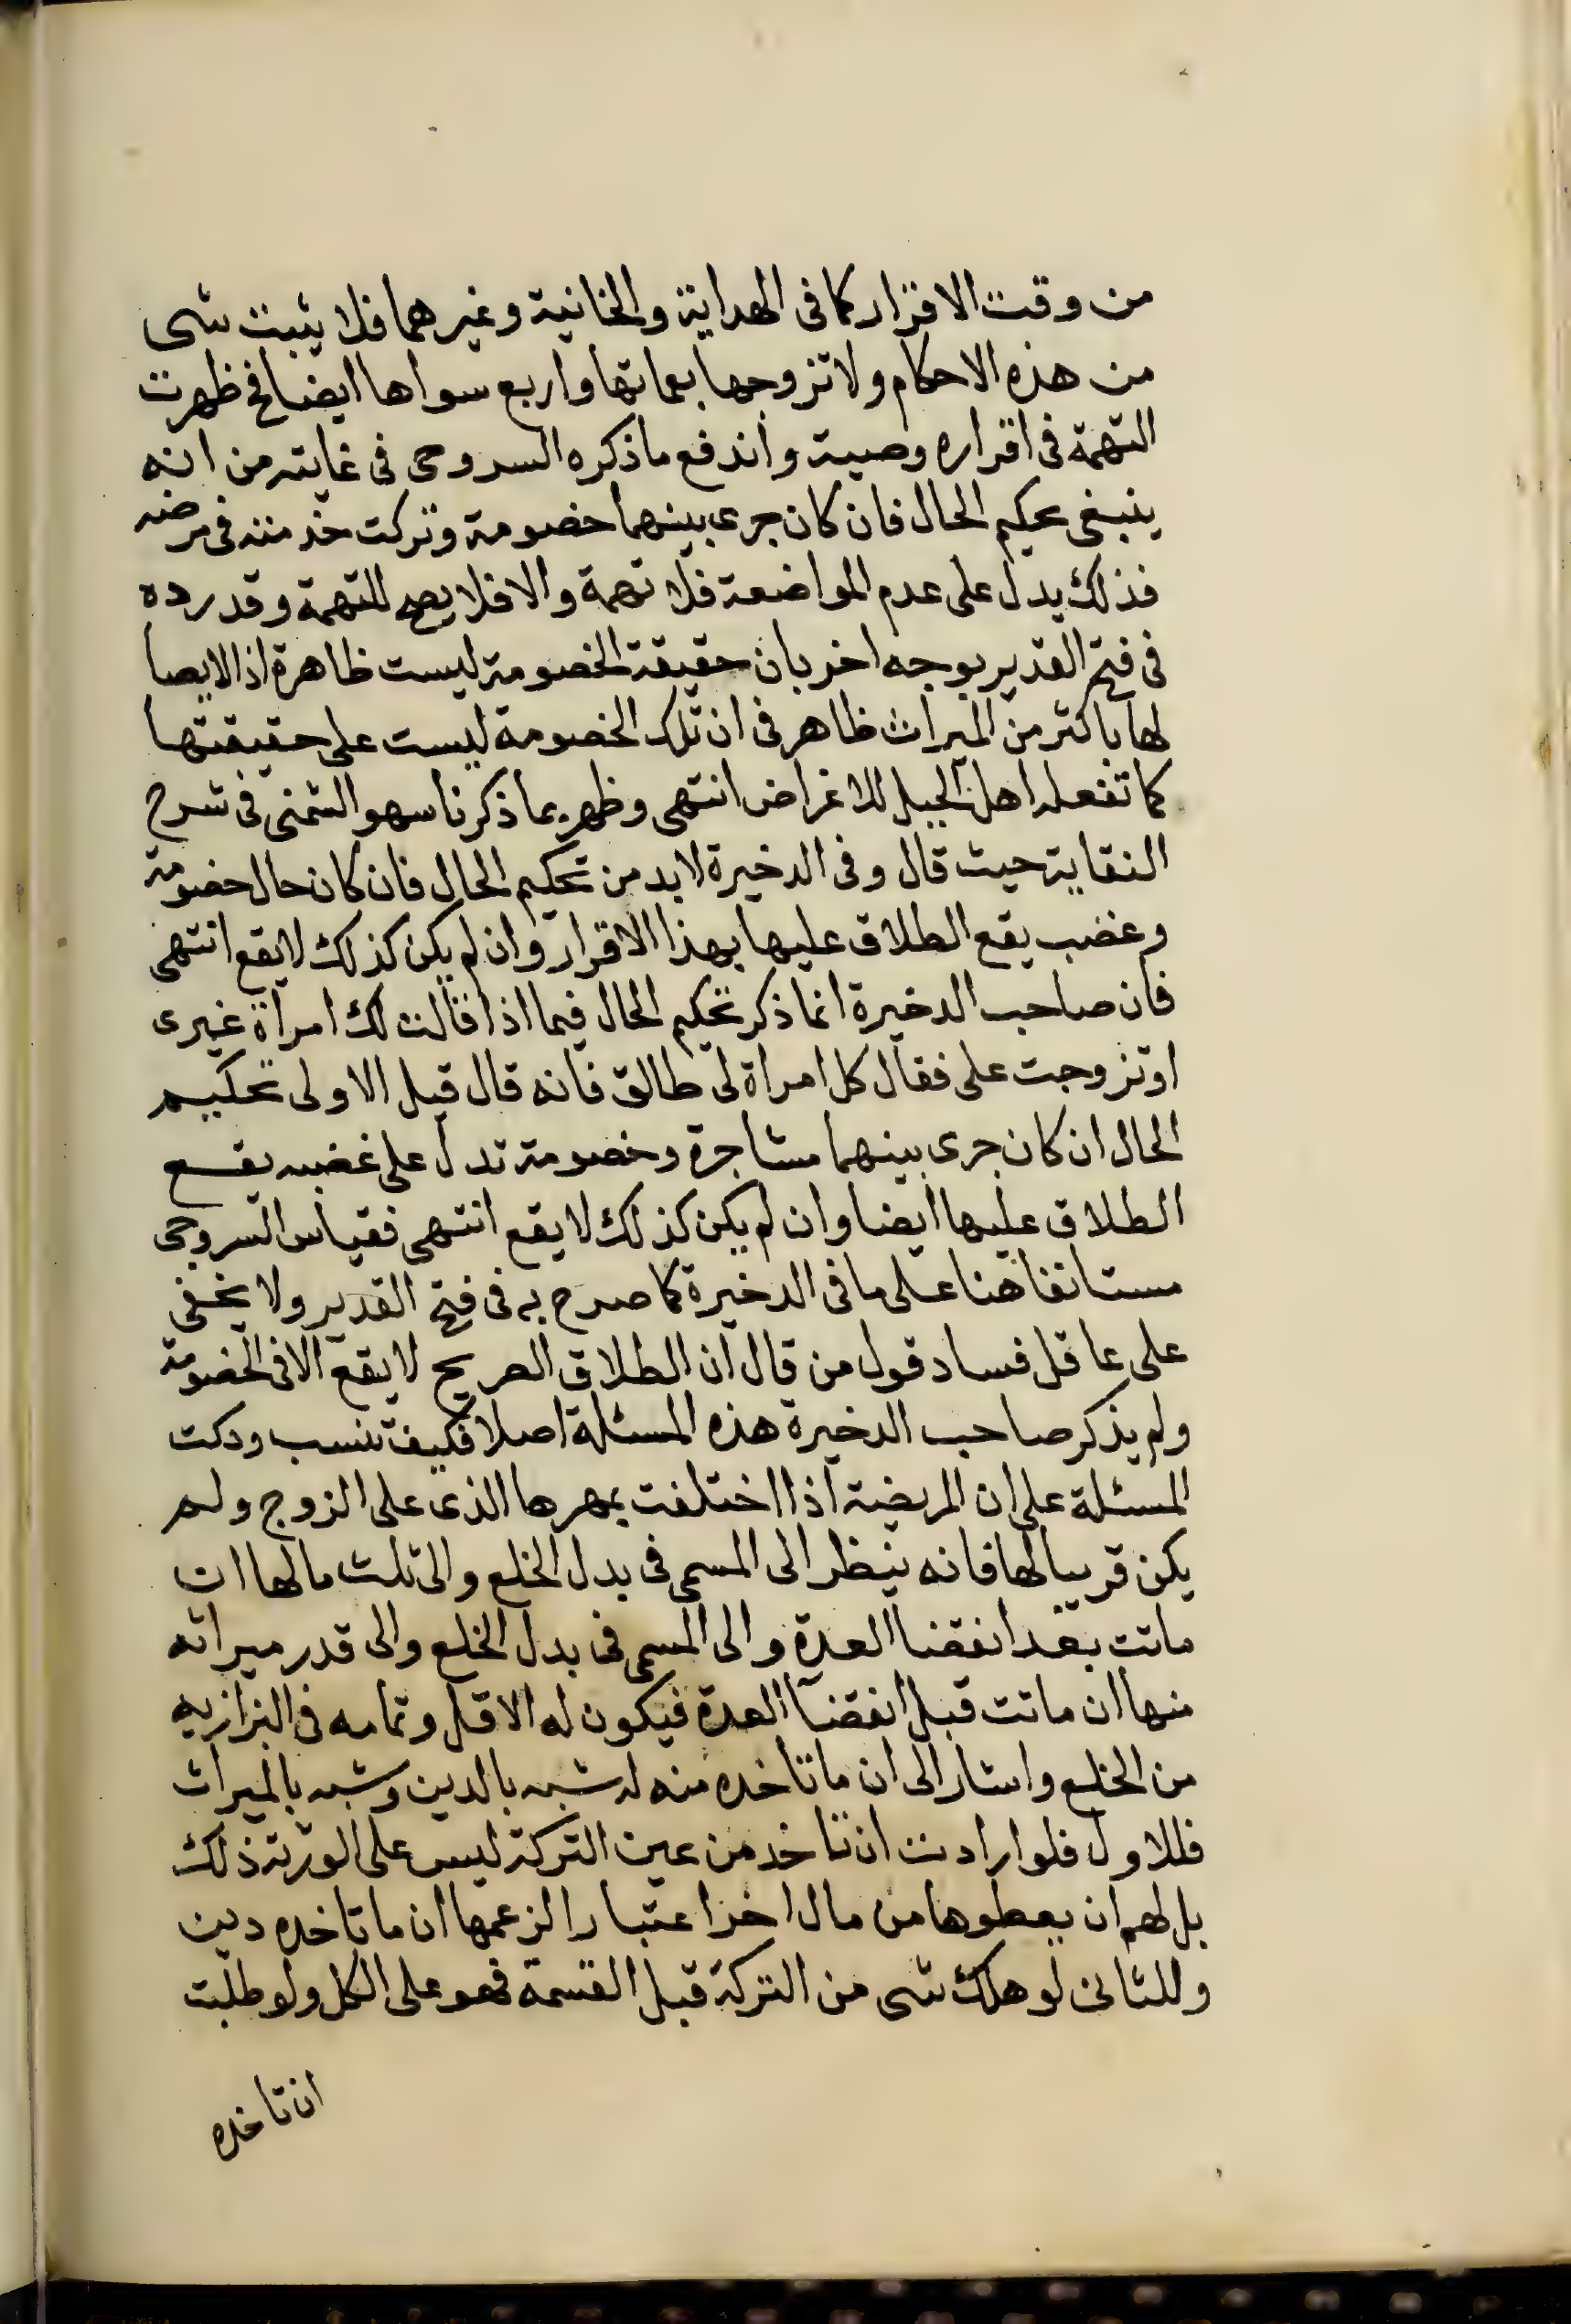 من وقت الاقرار كما فى الهداية والخانية وغيرهما فلا يثبت شى
من هذه الاحكام ولا تزوجها بعماتها واربع سواها ايضا فح ظهرت
التهمة فى اقراره وصية واندفع ما ذكره السروجى فى غايته من انه
ينبغى تحكيم الحال فان كان جرى بينهما خصومة وتركت خدمته فى مرضه
فذلك يدل على عدم المواضعة فلا تهمة والا فلا يصح للتهمة وقد رده
فى فتح القدير بوجه اخر بان حقيقة الخصومة ليست ظاهرة اذ الايصا
لها باكثر من الميراث ظاهر فى ان تلك الخصومة ليست على حقيقتها
كما تفعله اهل الحيل للاغراض انتهى وظهر بما ذكرنا سهو الشمنى فى شرح
النقاية حيث قال وفى الدخيرة لا بد من تحكيم الحال فان كان حال خصومة
وغضب يقع الطلاق عليها بهذا الاقرار وان لم يكن كذلك لا يقع انتهى
فان صاحب الدخيرة انما ذكر تحكيم الحال فيما اذا قالت لك امراة غيرى
اوتزوجت على فقال كل امراة لى طالق فانه قال قيل الاولى تحكيم
الحال ان كان جرى بينهما مشاجرة وخصومة تدل على غضبه يقع
الطلاق عليها ايضا وان لم يكن كذلك لا يقع انتهى فقياس السروجى
مستانفا هنا على ما فى الدخيرة كما صرح به فى فتح القدير ولا يخفى
على عاقل فساد قول من قال ان الطلاق الصريح لا يقع الا فى الخصومة
ولم يذكر صاحب الدخيرة هذه المسئلة اصلا فكيف تنسب ودكت
المسئلة على ان المريضة اذا اختلفت بمهرها الذى على الزوج ولم
يكن قريبا لها فانه ينظر الى المسمى فى بدل الخلع والى تلت مالها ان
ماتت بعد انقضا العدة والى المسمى فى بدل الخلع والى قدر ميراثه
منها ان ماتت قبل انقضا العدة فيكون له الاقل وتمامه فى البزازيه
من الخلع واشار الى ان ما تاخده منه له شبه بالدين وشبه بالميراث
فللاول فلو ارادت ان تاخد من عين التركة ليس على الورثة ذلك
بل لهم ان يعطوها من مال اخر اعتبارا لزعمها ان ما تاخده دين
وللثانى لو هلك شى من التركة قبل القسمة فهو على الكل ولو طلبت
ان تاخده